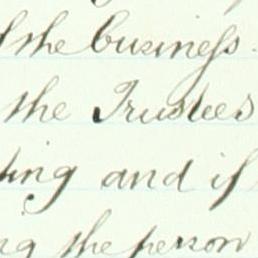 the business.
the Trustees
and if
the person